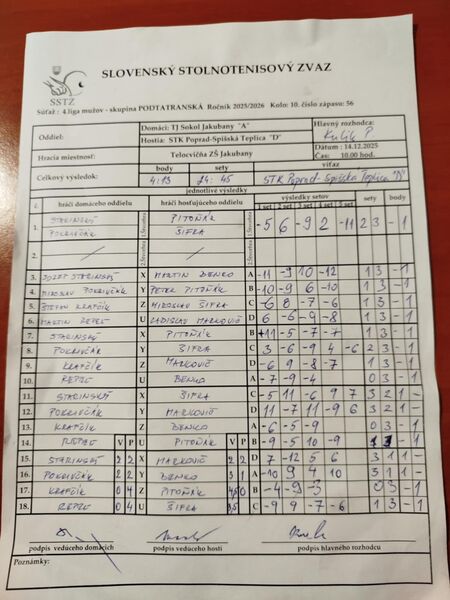 SLOVENSKÝ STOLNOTENISOVÝ ZVÄZ
SSTZ
Súťaž : 4.liga mužov - skupina PODTATRANSKÁ Ročník 2025/2026 Kolo: 10. číslo zápasu: 56
Oddiel: Domáci: TJ Sokol Jakubany "A" Hlavný rozhodca:
Hostia: STK Poprad-Spišská Teplica "D" Kulik P.
Hracia miestnosť: Telocvičňa ZŠ Jakubany Dátum : 14.12.2025
Čas: 10.00 hod.
Celkový výsledok: body sety víťaz
4:13 24:45 STK Poprad-Spišská Teplica "D"
jednotlivé výsledky
č. hráči domáceho oddielu hráči hosťujúceho oddielu výsledky setov sety body
1 set 2 set 3 set 4 set 5 set
1. STARINSKÝ PITOŇÁK -5 6 -9 2 -11 2 3 - 1
POKRIVČÁK ŠIFRA
2. / /
3. JOZEF STARINSKÝ X MARTIN DENKO A -11 -9 10 -12 1 3 - 1
4. MIROSLAV POKRIVČÁK Y PETER PITOŇÁK B -10 -9 6 -10 1 3 - 1
5. ŠTEFAN KRAFČÍK Z MIROSLAV ŠIFRA C -6 8 -7 -6 1 3 - 1
6. MARTIN REPEL U LADISLAV MARKOVIČ D 6 -6 -9 -8 1 3 - 1
7. STARINSKÝ X PITOŇÁK B 11 -5 -7 -7 1 3 - 1
8. POKRIVČÁK Y ŠIFRA C 3 -6 -9 4 -6 2 3 - 1
9. KRAFČÍK Z MARKOVIČ D -6 9 -8 -7 1 3 - 1
10. REPEL U DENKO A -7 -9 -4 0 3 - 1
11. STARINSKÝ X ŠIFRA C -5 11 -6 9 7 3 2 1 -
12. POKRIVČÁK Y MARKOVIČ D 11 -7 11 -9 6 3 2 1 -
13. KRAFČÍK Z DENKO A -6 -5 -9 0 3 - 1
14. REPEL V P U PITOŇÁK V P B -9 -5 10 -9 1 3 - 1
15. STARINSKÝ 2 2 X MARKOVIČ 2 2 D 7 -12 5 6 3 1 1 -
16. POKRIVČÁK 2 2 Y DENKO 3 1 A -10 9 4 10 3 1 1 -
17. KRAFČÍK 0 4 Z PITOŇÁK B -4 -9 -3 0 3 - 1
18. REPEL 0 4 U ŠIFRA C -9 9 -7 -6 1 3 - 1
podpis vedúceho domácich podpis vedúceho hostí podpis hlavného rozhodcu
Poznámky: